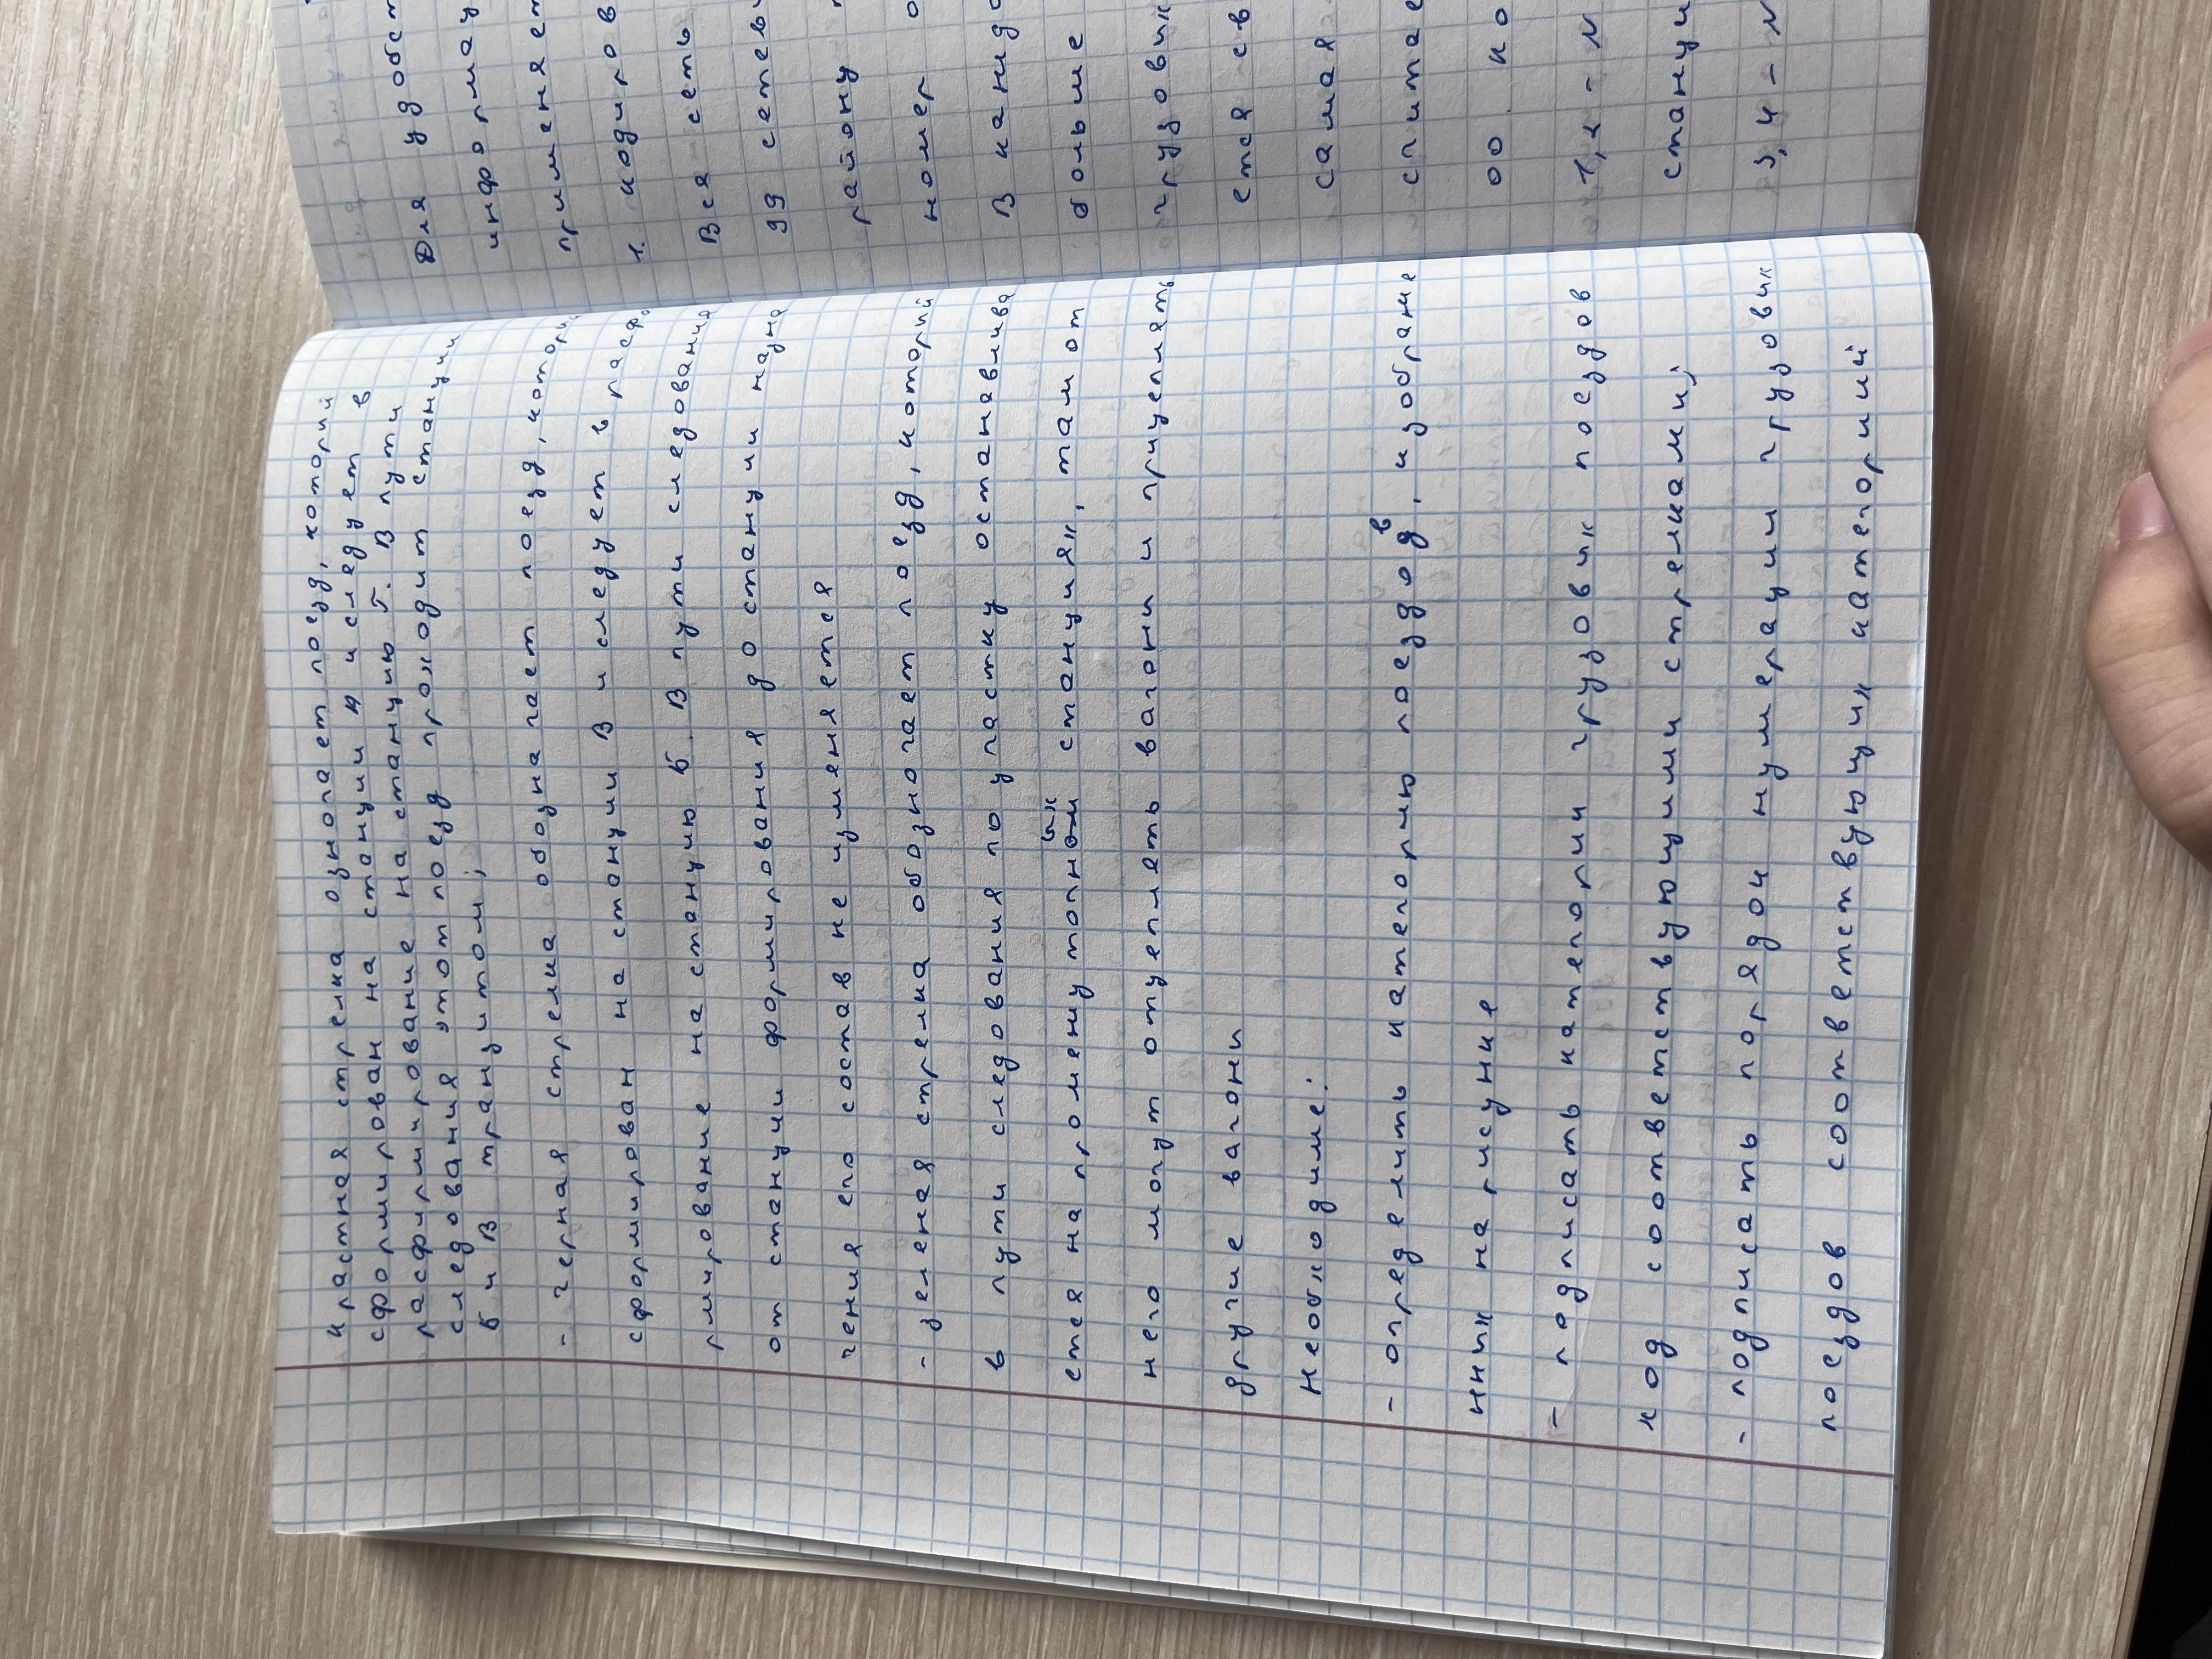 красная стрелка означает поезд, который
сформирован на станции А и следует в
расформирование на станцию Г. В пути
следования этот поезд проходит станции
Б и В транзитом;
- черная стрелка обозначает поезд, котор
сформирован на станции В и следует в расфо
рмирование на станцию Б. В пути следования
от станции формирования до станции назна
чения его состав не изменяется
- зеленая стрелка обозночает поезд, который
в пути следования по участку останавлива
ется на промежуточных станциях, там от
него могут отцеплять вагоны и прицеплять
другие вагоны
Необходиме:
- определить категорию поездов, изображе
нных на рисунке
- подписать категории грузовых поездов
над соответствующими стрелками;
- подписать порядок нумерации грузовых
поездов соответствующих категорий
Для удобст
информац
применяет
1. кодиров
Вся сеть
99 сетевы
району
номер о
В каждо
больше
грузовых
ется св
самая
считае
00. ко
1, 2 - м
станци
3, 4 - м